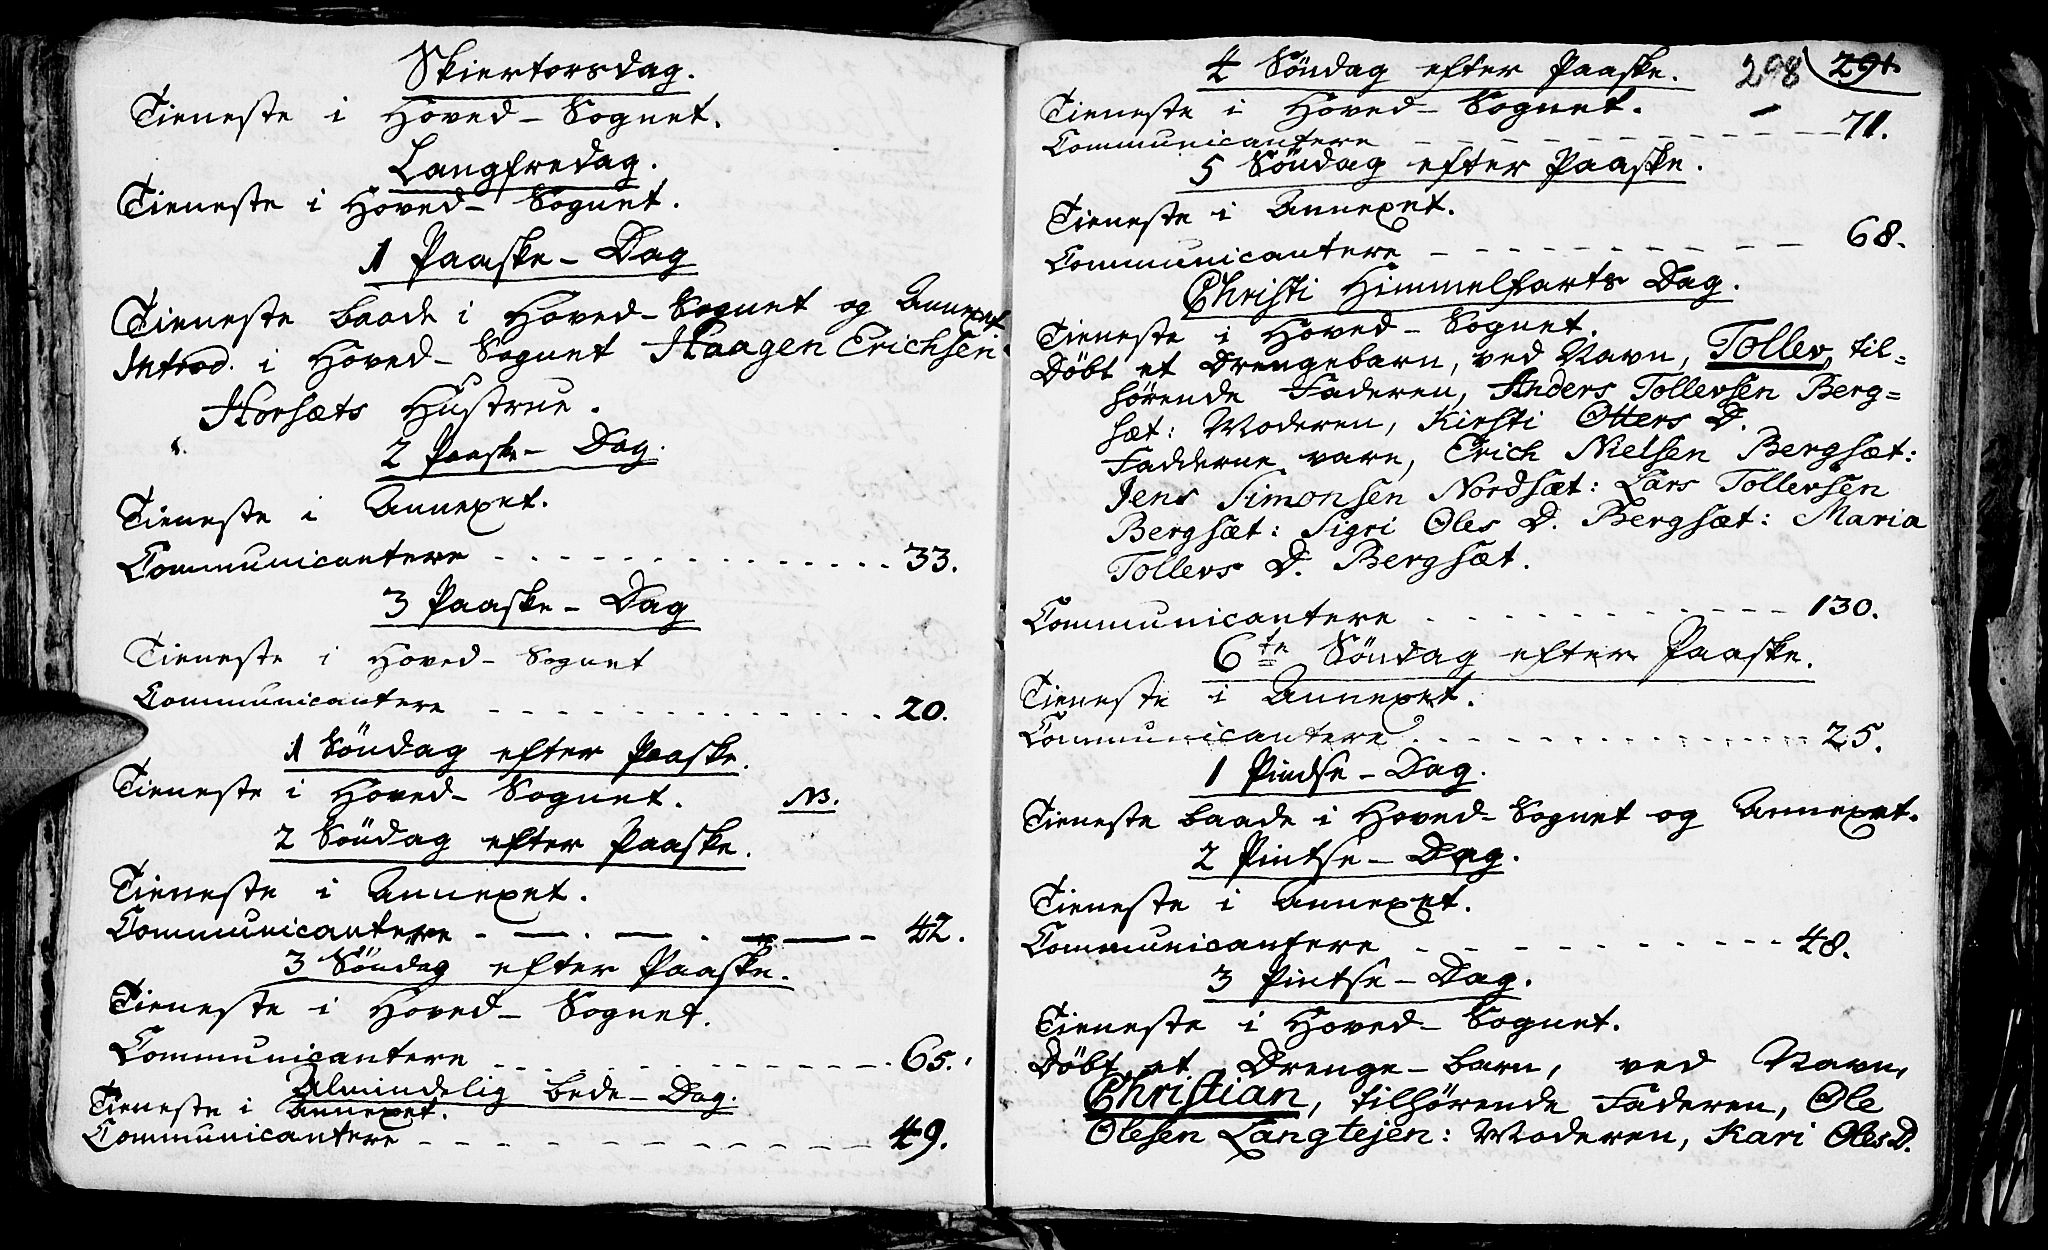 Skiertorsdag.
Tieneste i Hoved-Sognet.
Langfredag.
Tieneste i Hoved-Sognet.
1 Paaske-Dag
Tieneste baade i Hoved-Sognet og Annexet
Introd. i Hoved-Sognet Haagen Erichsen
Horsæts Hustrue.
2 Paaske-Dag.
Tieneste i Annexet.
Communicantere - - - - - - - - - - - - 33.
3 Paaske-Dag
Tieneste i Hoved-Sognet
Communicantere - - - - - - - - - - - - 20.
1 Söndag efter Paaske.
Tieneste i Hoved-Sognet. NB.
2 Söndag efter Paaske.
Tieneste i Annexet.
Communicantere - - - - - - 42.
3 Söndag efter Paaske.
Tieneste i Hoved-Sognet.
Communicantere - - - - - - - - - - - - 65.
Almindelig bede-Dag.
Tieneste i Annexet.
Communicantere - - - - - - - - - - - - 49.
298 291.
4 Söndag efter Paaske.
Tieneste i Hoved-Sognet.
Communicantere - - - - - - - - - - - - 71.
5 Söndag efter Paaske.
Tieneste i Annexet.
Communicantere - - - - - - - - - - 68.
Christi Himmelfarts Dag.
Tieneste i Hoved-Sognet.
Döbt et Drengebarn, ved Navn, Tollev, til=
hörende Faderen, Anders Tollevsen Berg=
sæt: Moderen, Kirsti Otters D.
Fadderne vare, Erich Nielsen Bergsæt:
Jens Simonsen Nordsæt: Lars Tollevsen
Bergsæt: Sigri Oles D. Bergsæt: Maria
Tollevs D. Bergsæt.
Communicantere - - - - - - - - - - 130.
6te Söndag efter Paaske.
Tieneste i Annexet.
Communicantere - - - - - - - - - - - - 25.
1 Pindse-Dag.
Tieneste baade i Hoved-Sognet og Annexet.
2 Pintse-Dag.
Tieneste i Annexet.
Communicantere - - - - - - - - - - 48.
3 Pintse-Dag.
Tieneste i Hoved-Sognet.
Döbt et Drenge-barn, ved Navn,
Christian, tilhörende Faderen, Ole
Olesen Langtejen: Moderen, Kari Oles D.